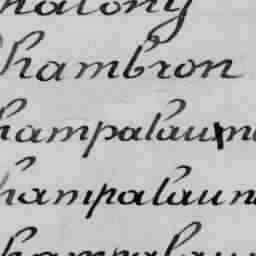 halony
hambron
hampalaum
hampalaun